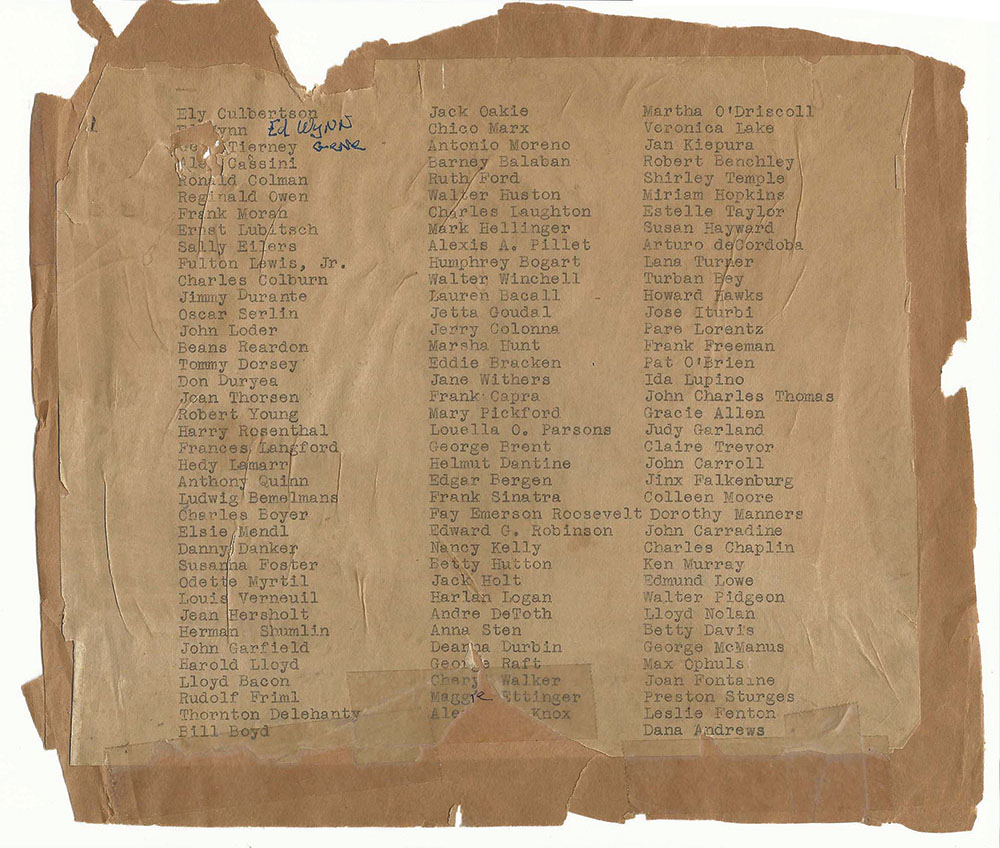 Ely Culbertson
Wynn Ed WyNN
Tierney Gene
Cassini
Ronald Colman
Reginald Owen
Frank Moran
Ernst Lubitsch
Sally Eilers
Fulton Lewis, Jr.
Charles Colburn
Jimmy Durante
Oscar Serlin
John Loder
Beans Reardon
Tommy Dorsey
Don Duryea
Jean Thorsen
Robert Young
Harry Rosenthal
Frances Langford
Hedy Lamarr
Anthony Quinn
Ludwig Bemelmans
Charles Boyer
Elsie Mendl
Danny Danker
Susanna Foster
Odette Myrtil
Louis Verneuil
Jean Hersholt
Herman Shumlin
John Garfield
Harold Lloyd
Lloyd Bacon
Rudolf Friml
Thornton Delehanty
Bill Boyd
Jack Oakie
Chico Marx
Antonio Moreno
Barney Balaban
Ruth Ford
Walter Huston
Charles Laughton
Mark Hellinger
Alexis A. Pillet
Humphrey Bogart
Walter Winchell
Lauren Bacall
Jetta Goudal
Jerry Colonna
Marsha Hunt
Eddie Bracken
Jane Withers
Frank Capra
Mary Pickford
Louella O. Parsons
George Brent
Helmut Dantine
Edgar Bergen
Frank Sinatra
Fay Emerson Roosevelt
Edward G. Robinson
Nancy Kelly
Betty Hutton
Jack Holt
Harlan Logan
Andre DeToth
Anna Sten
Deanna Durbin
George Raft
Cheryl Walker
Maggie Ettinger
Knox
Martha O'Driscoll
Veronica Lake
Jan Kiepura
Robert Benchley
Shirley Temple
Miriam Hopkins
Estelle Taylor
Susan Hayward
Arturo deCordoba
Lana Turner
Turban Bey
Howard Hawks
Jose Iturbi
Pare Lorentz
Frank Freeman
Pat O'Brien
Ida Lupino
John Charles Thomas
Gracie Allen
Judy Garland
Claire Trevor
John Carroll
Jinx Falkenburg
Colleen Moore
Dorothy Manners
John Carradine
Charles Chaplin
Ken Murray
Edmund Lowe
Walter Pidgeon
Lloyd Nolan
Betty Davis
George McManus
Max Ophuls
Joan Fontaine
Preston Sturges
Leslie Fenton
Dana Andrews